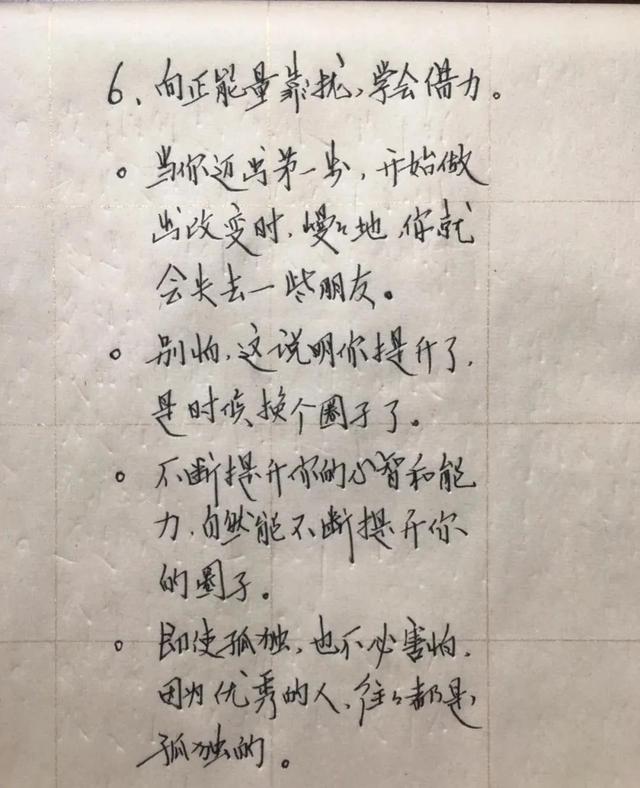 6、向正能量靠拢，学会借力。
。当你迈出第一步，开始做
出改变时，慢々地，你就
会失去一些朋友。
。别怕，这说明你提升了，
是时候换个圈子了。
。不断提升你的心智和能
力，自然能不断提升你
的圈子。
。即使孤独，也不必害怕，
因为优秀的人，往々都是
孤独的。